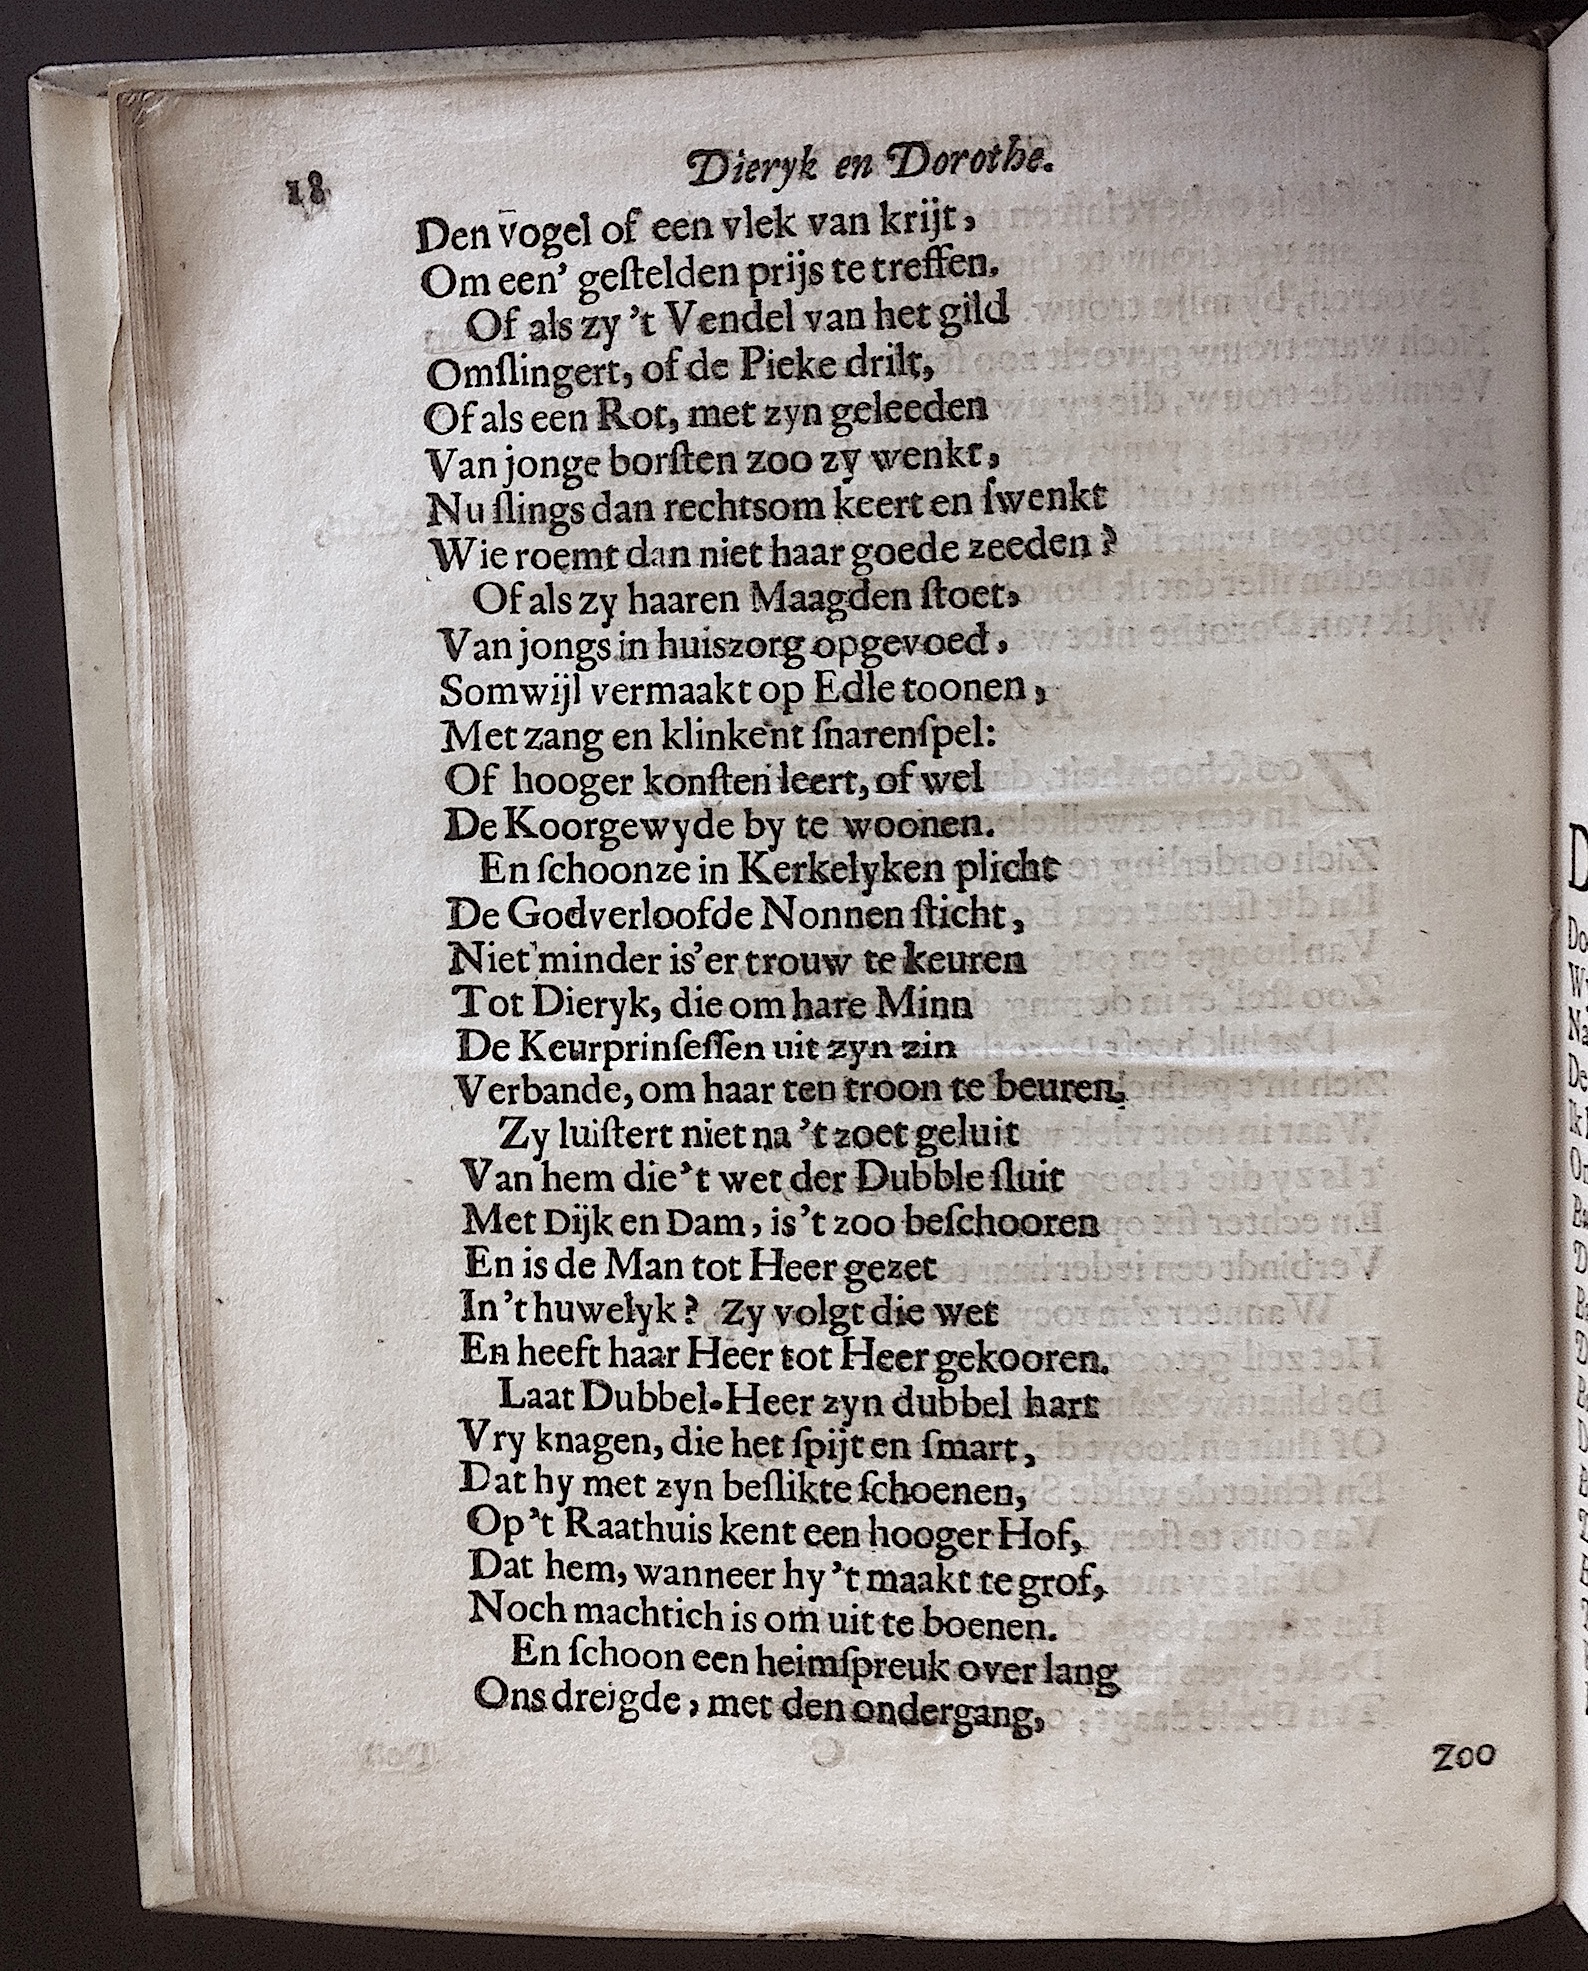 18 Dieryk en Dorothe.
Den vogel of een vlek van krijt,
Om een’ geſtelden prijs te treffen.
Of als zy ’t Vendel van het gild
Omſlingert, of de Pieke drilt,
Of als een Rot, met zyn geleeden
Van jonge borſten zoo zy wenkt,
Nu ſlings dan rechtsom keert en ſwenkt
Wie roemt dan niet haar goede zeeden?
Of als zy haaren Maagden ſtoet,
Van jongs in huiszorg opgevoed,
Somwijl vermaakt op Edle toonen,
Met zang en klinkent ſnarenſpel:
Of hooger konſten leert, of wel
De Koorgewyde by te woonen.
En ſchoonze in Kerkelyken plicht
De Godverloofde Nonnen ſticht,
Niet minder is’er trouw te keuren
Tot Dieryk, die om hare Minn
De Keurprinſeſſen uit zyn zin
Verbande, om haar ten troon te beuren.
Zy luiſtert niet na ’t zoet geluit
Van hem die’t wet der Dubble ſluit
Met Dijk en Dam, is’t zoo beſchooren
En is de Man tot Heer gezet
In ’t huwelyk? Zy volgt die wet
En heeft haar Heer tot Heer gekooren.
Laat Dubbel-Heer zyn dubbel hart
Vry knagen, die het ſpijt en ſmart,
Dat hy met zyn beſlikte ſchoenen,
Op’t Raathuis kent een hooger Hof,
Dat hem, wanneer hy ’t maakt te grof,
Noch machtich is om uit te boenen.
En ſchoon een heimſpreuk over lang
Ons dreigde, met den ondergang,
Zoo